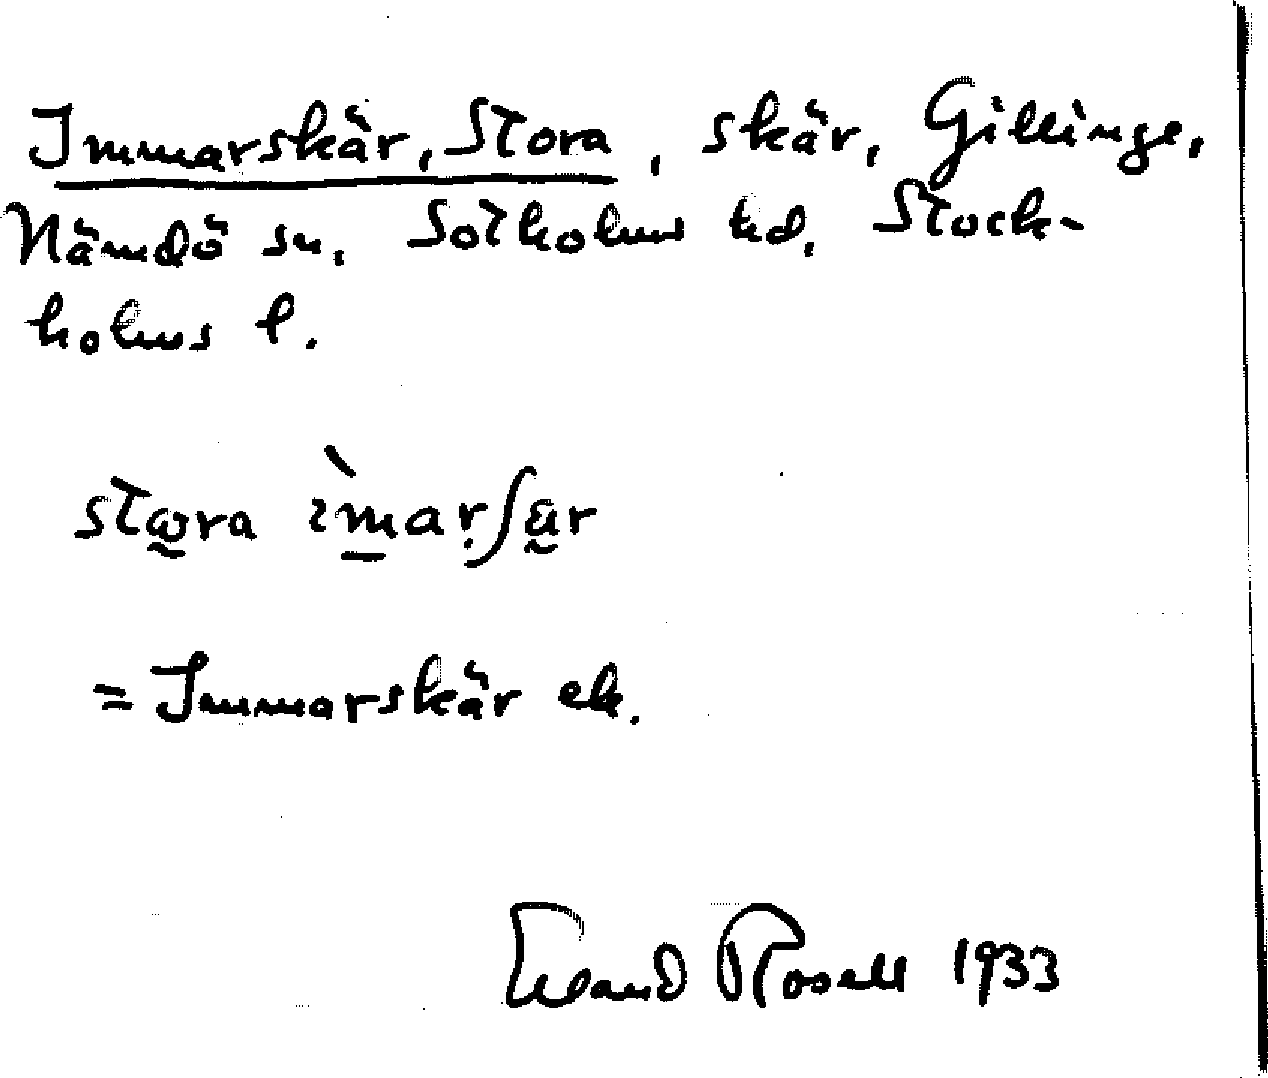 Immarskär, Stora, skär, Gillinge,
Nämdö sn. Sotholms hd. Stock-
holms l.
stωra ìmarʃär
= Immarskär ek.
Erland Rosell 1933